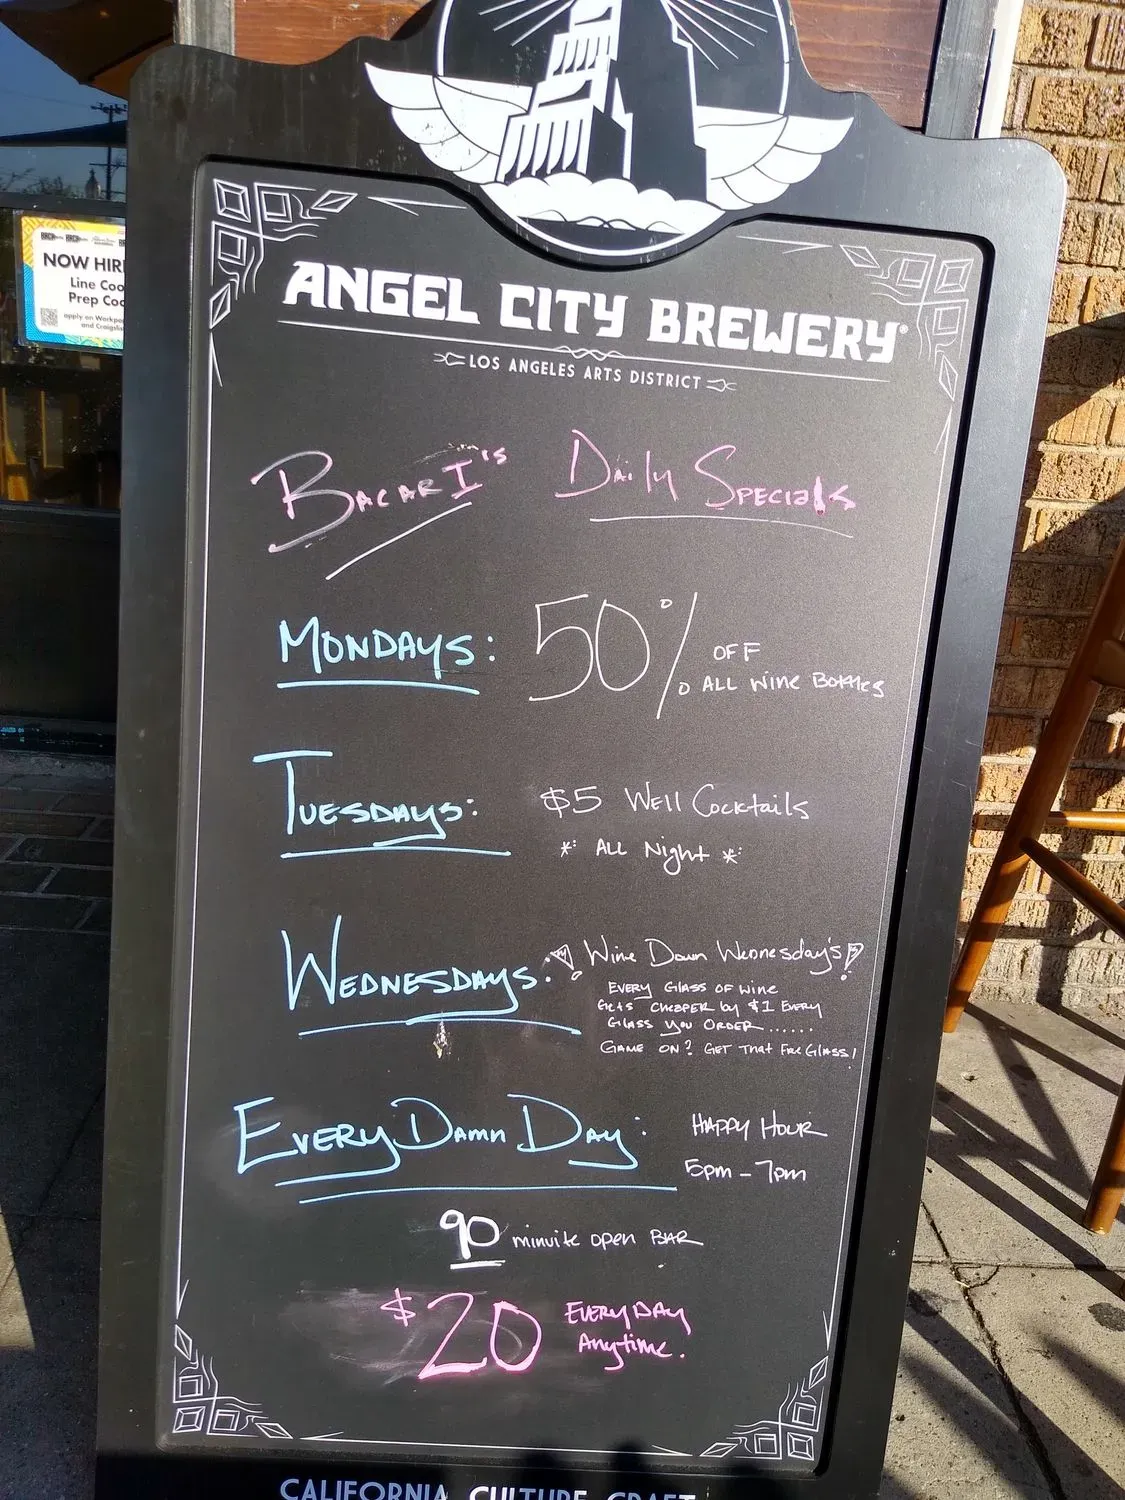 NOW HIRI
Line Coo
Prep Coo
apply on Workpo
and Craigslis
ANGEL CITY BREWERY®
LOS ANGELES ARTS DISTRICT
BACARI's DAily SPECIAlS
MONDAYS: 50% OFF
ALL WINE BOTTLES
TUESDAYS: $5 WEll Cocktails
* ALL Night *
WEDNESDAYS: Wine Down Wednesday's!
EVERY GLASS OF WINE
GETS CHEAPER by $1 EVERY
GLASS YOU ORDER......
GAME ON? GET THAT FREE GLASS!
EVERY DAMN DAY: HAPPY HOUR
5pm - 7pm
90 minuite open BAR
$20 EVERYDAY
Anytime.
CALIFORNIA CULTURE CRAFT